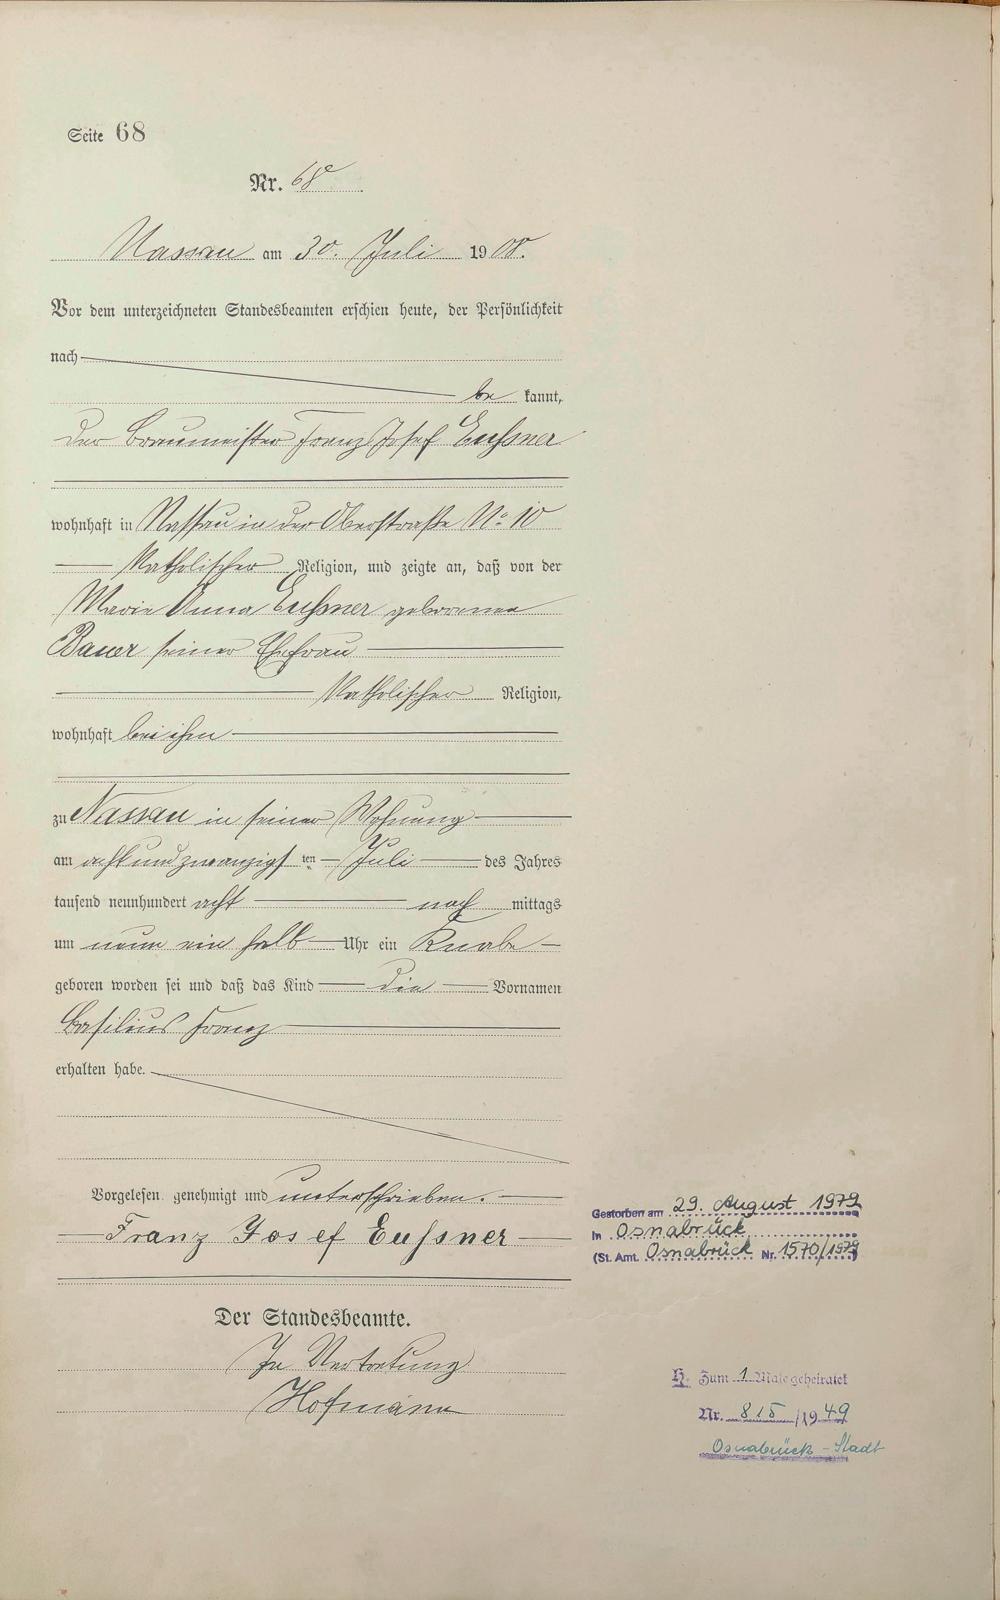 Seite 68
Nr. 68
Nassau am 30. Juli 1908.
Vor dem unterzeichneten Standesbeamten erschien heute, der Persönlichkeit
nach
be kannt,
der Braumeister Franz Josef Eußner
wohnhaft in Nassau in der Oberstraße No 10
Katholischer Religion, und zeigte an, daß von der
Marie Anna Eußner geborenen
Bauer seiner Ehefrau
Katholischer Religion,
wohnhaft bei ihm
zu Nassau in seiner Wohnung
am acht und zwanzigsten Juli des Jahres
tausend neunhundert acht nach mittags
um neun ein halb Uhr ein Knabe
geboren worden sei und daß das Kind die Vornamen
Basilius Franz
erhalten habe.
Vorgelesen, genehmigt und unterschrieben.
Franz Josef Eußner
Gestorben am 29. August 1979
in Osnabrück
(St. Amt. Osnabrück Nr. 1570/1979)
Der Standesbeamte.
In Vertretung
Hofmann
H. Zum 1. Male geheiratet
Nr. 815/1949
Osnabrück-Stadt